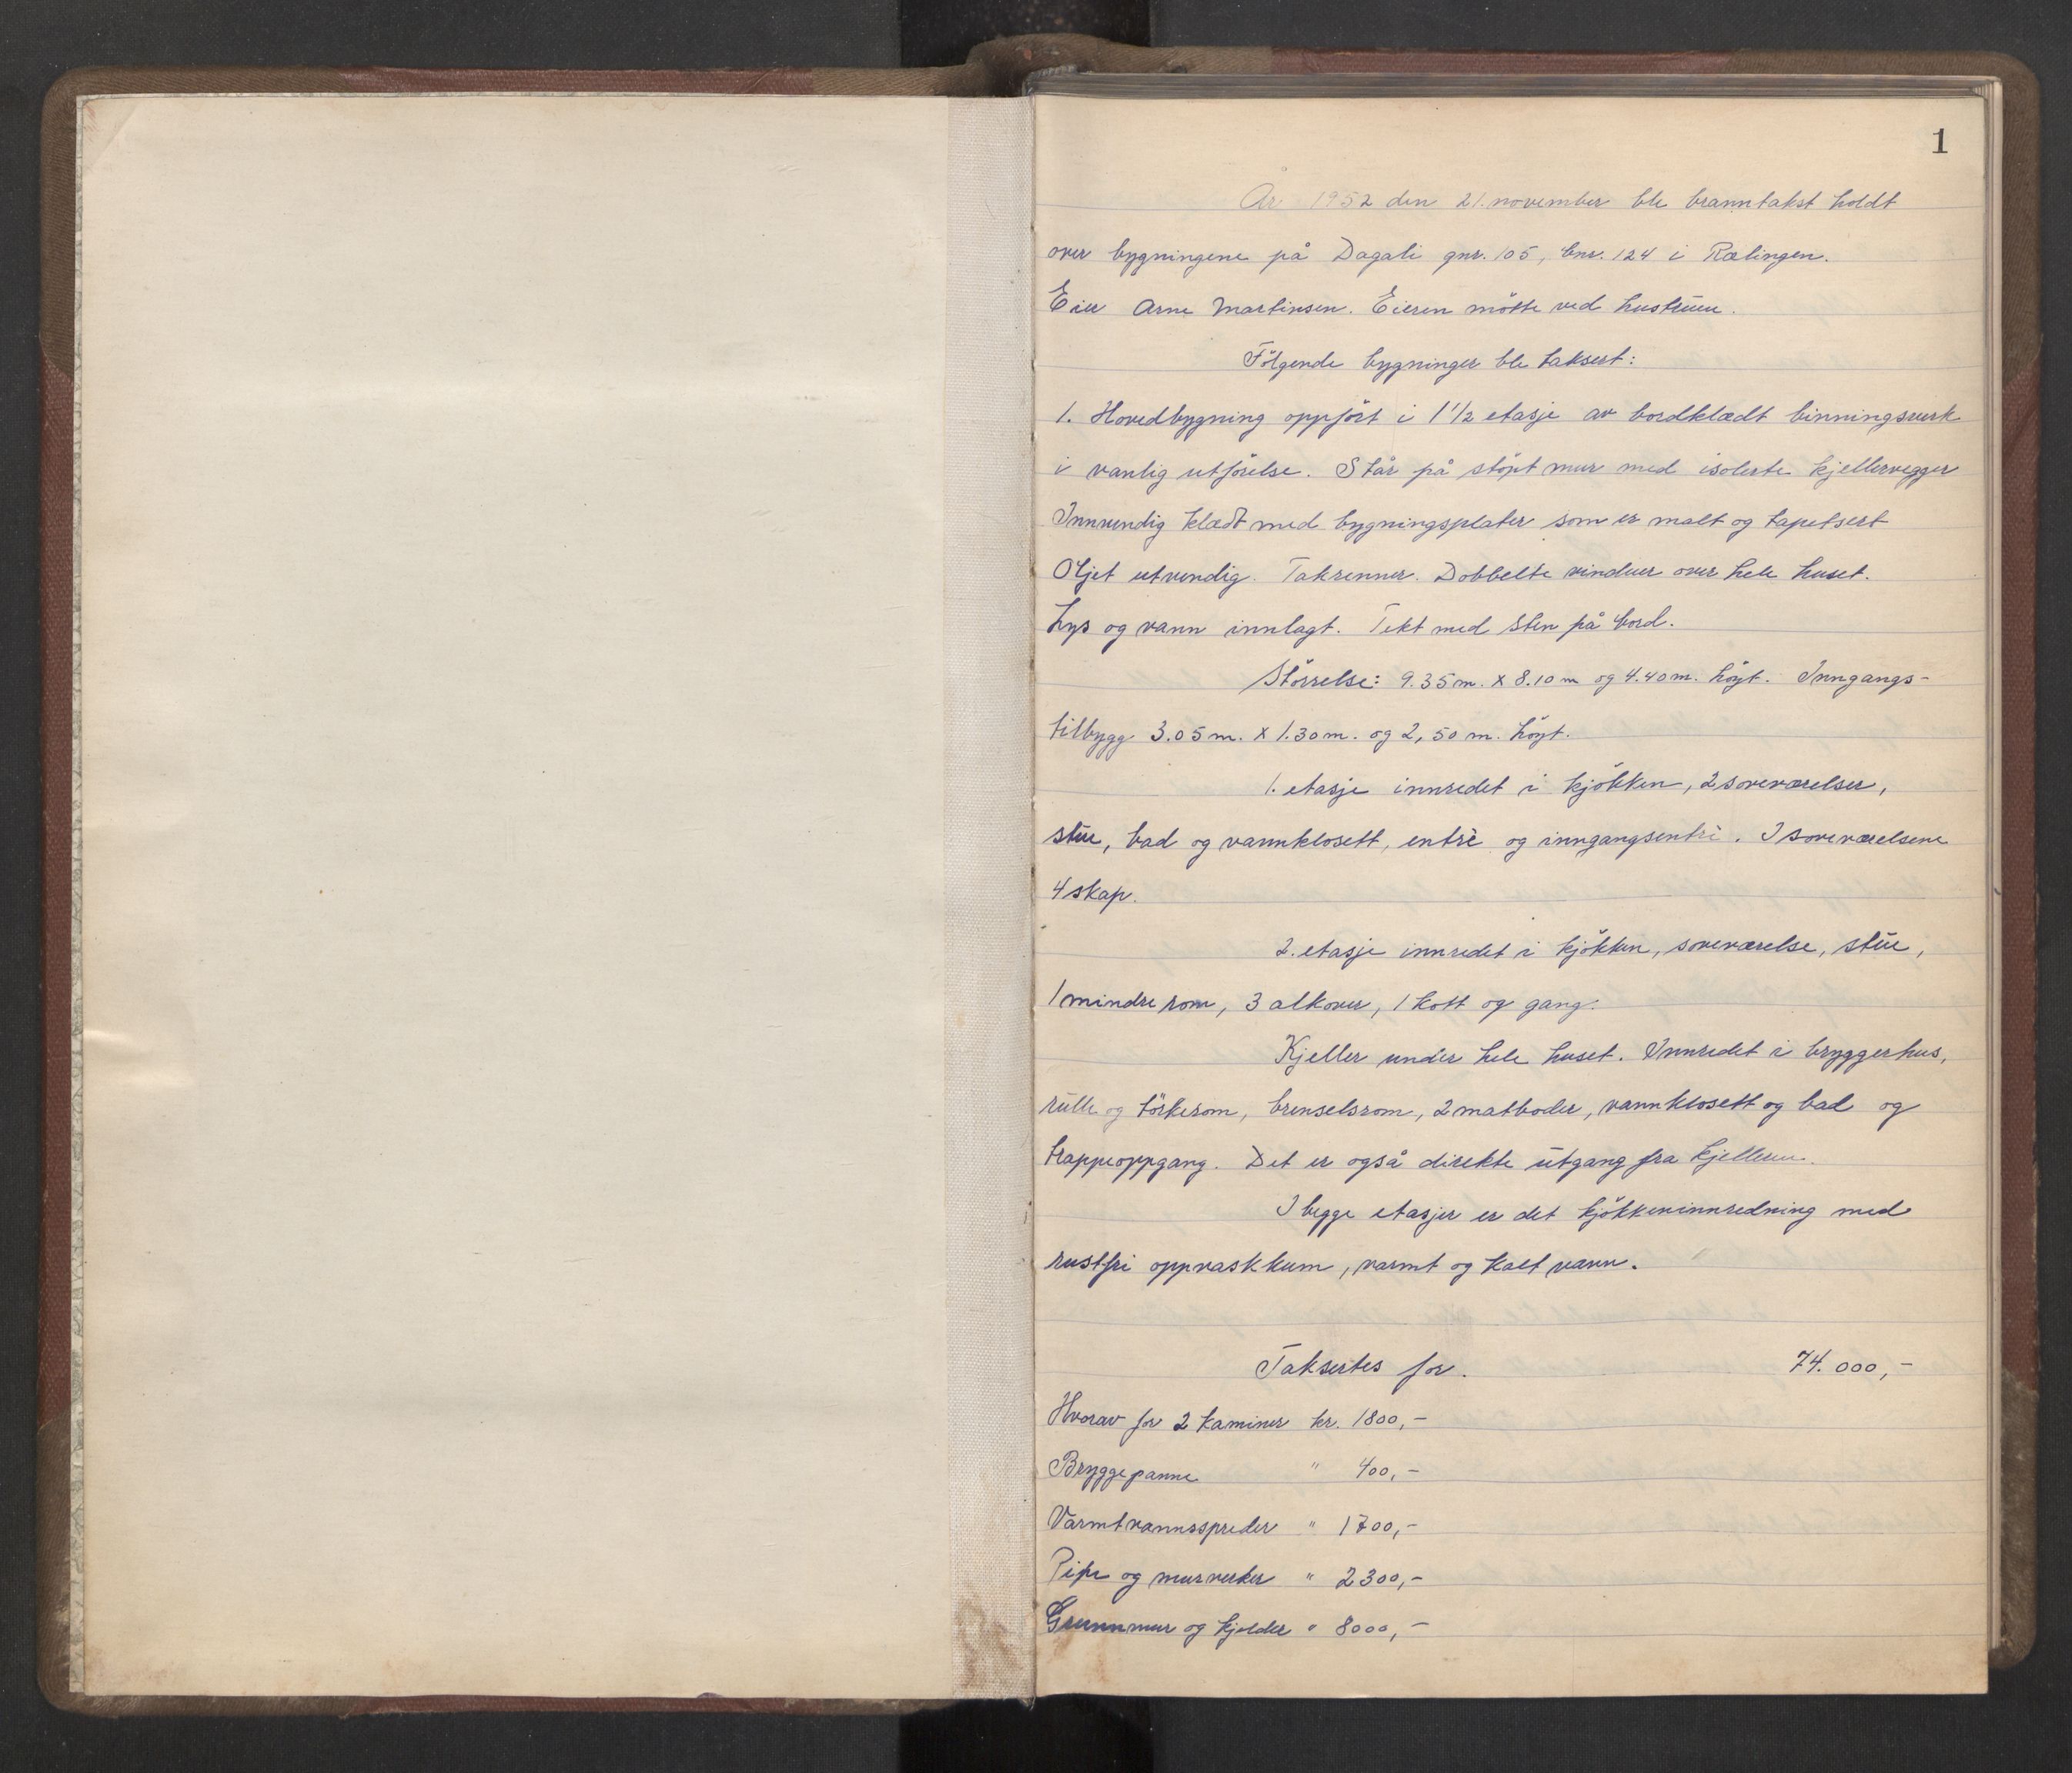 1
År 1952 den 21. november ble branntakst holdt
over bygningene på Dagali gnr. 105, bnr. 124 i Rælingen.
Eier Arne Martinsen. Eieren møtte ved hustruen.
Følgende bygninger ble taksert:
1. Hovedbygning oppført i 1 1/2 etasje av bordklædt binningsverk
i vanlig utførelse. Står på støpt mur med isolerte kjellervegger
Innvendig klædt med bygningsplater som er malt og tapetsert
Oljet utvendig. Takrenner. Dobbelte vinduer over hele huset.
Lys og vann innlagt. Tekt med sten på bord.
Størrelse: 9.35 m. x 8.10 m og 4.40 m. høgt. Inngangs-
tilbygg 3.05 m. x 1.30 m. og 2,50 m. høgt.
1. etasje innredet i kjøkken, 2 soveværelser,
stue, bad og vannklosett, entrè og inngangsentrè. I soveværelsene
4 skap.
2. etasje innredet i kjøkken, soveværelse, stue,
1 mindre rom, 3 alkover, 1 kott og gang.
Kjeller under hele huset. Innredet i bryggerhus,
rulle og tørkerom, brenselsrom, 2 matboder, vannklosett og bad og
trappeoppgang. Det er også direkte utgang fra kjelleren.
I begge etasjer er det kjøkkeninnredning med
rustfri oppvaskkum, varmt og kalt vann.
Taksertes for. 74.000,-
Hvorav for 2 kaminer kr. 1800,-
Bryggepanne " 400,-
Varmtvannsspreder " 1700,-
Pipe og murverker " 2300,-
Grunnmur og kjelder " 8000,-